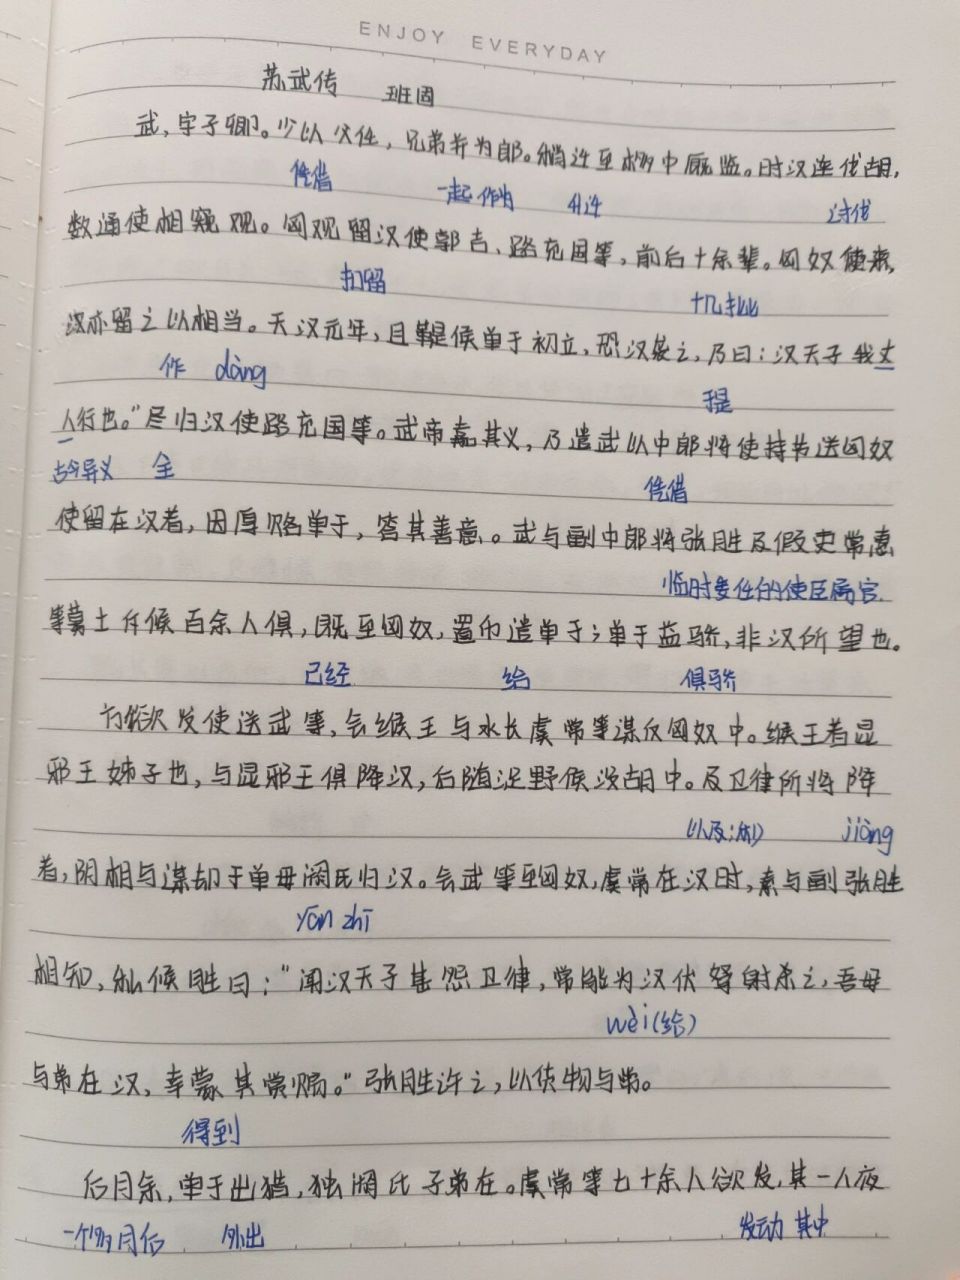 ENJOY EVERYDAY
苏武传 班固
武，字子卿。少以父任，兄弟并为郎。稍迁至栘中厩监。时汉连伐胡，
凭借 一起 作为 升迁 讨伐
数通使相窥观。匈观留汉使郭吉、路充国等，前后十余辈。匈奴使来，
扣留 十几批
汉亦留之以相当。天汉元年，且鞮候单于初立，恐汉袭之，乃曰：汉天子我丈
作 dàng 是
人行也。"尽归汉使路充国等。武帝嘉其义，乃遣武以中郎将使持节送匈奴
古今异义 全 凭借
使留在汉者，因厚赂单于，答其善意。武与副中郎将张胜及假吏常惠
临时委任的使臣属官
等募士斥候百余人俱，既至匈奴，置币遗单于；单于益骄，非汉所望也。
已经 给 俱骄
方欲发使送武等，会缑王与水长虞常等谋反匈奴中。缑王者昆
邪王姊子也，与昆邪王俱降汉，后随浞野候没胡中。及卫律所将降
以及； jiàng
者，阴相与谋劫于单母阏氏归汉。会武等至匈奴，虞常在汉时，素与副张胜
yān zhī
相知，私候胜曰："闻汉天子甚怨卫律，常能为汉伏弩射杀之，吾母
wèi(给)
与弟在汉，幸蒙其赏赐。"张胜许之，以货物与常。
得到
后月余，单于出猎，独阏氏子弟在。虞常等七十余人欲发，其一人夜
一个多月后 外出 发动 其中